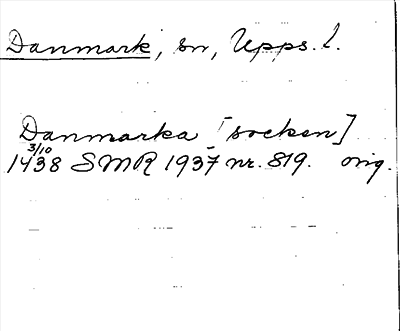 Danmark, sn, Upps. l.
Danmarka [socken]
3/10
1438 SMR 1937 nr. 819. orig.